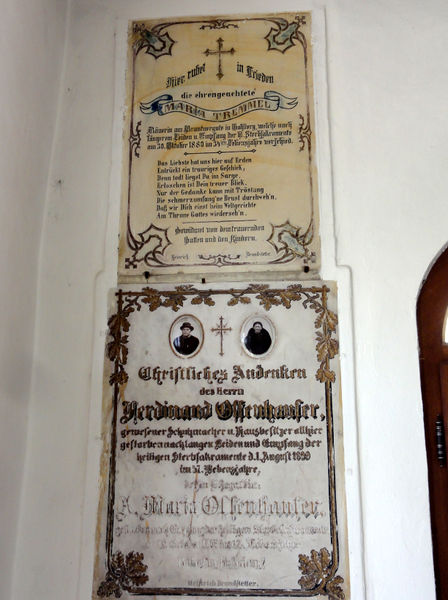 Hier ruhet in Frieden
die ehrengeachtete
MARIA TREMMEL
welche nach
längerem Leiden u. Empfang der h. Sterbsakramente
am 30. Oktober 1880 im Lebensjahre verschied.
Das Liebste hat uns hier auf Erden
Entrückt ein trauriges Geschick,
Denn todt liegst Du im Sarge,
Erloschen ist Dein treuer Blick.
Nur der Gedanke kann mit Tröstung
Die schmerzumfang'ne Brust durchweh'n,
Daß wir Dich einst beim Weltgerichte
Am Throne Gottes wiederseh'n.
Gewidmet von dem trauernden
Gatten und den Kindern.
Heinrich Brandstetter
Christliches Andenken
des Herrn
Ferdinand Offenhauser,
gewesener Schuhmacher u. Hausbesitzer allhier
gestorben nach langen Leiden und Empfang der
heiligen Sterbsakramente d. 1. August 1899
im 57. Lebensjahre,
A. Maria Offenhauser,
Heinrich Brandstetter.